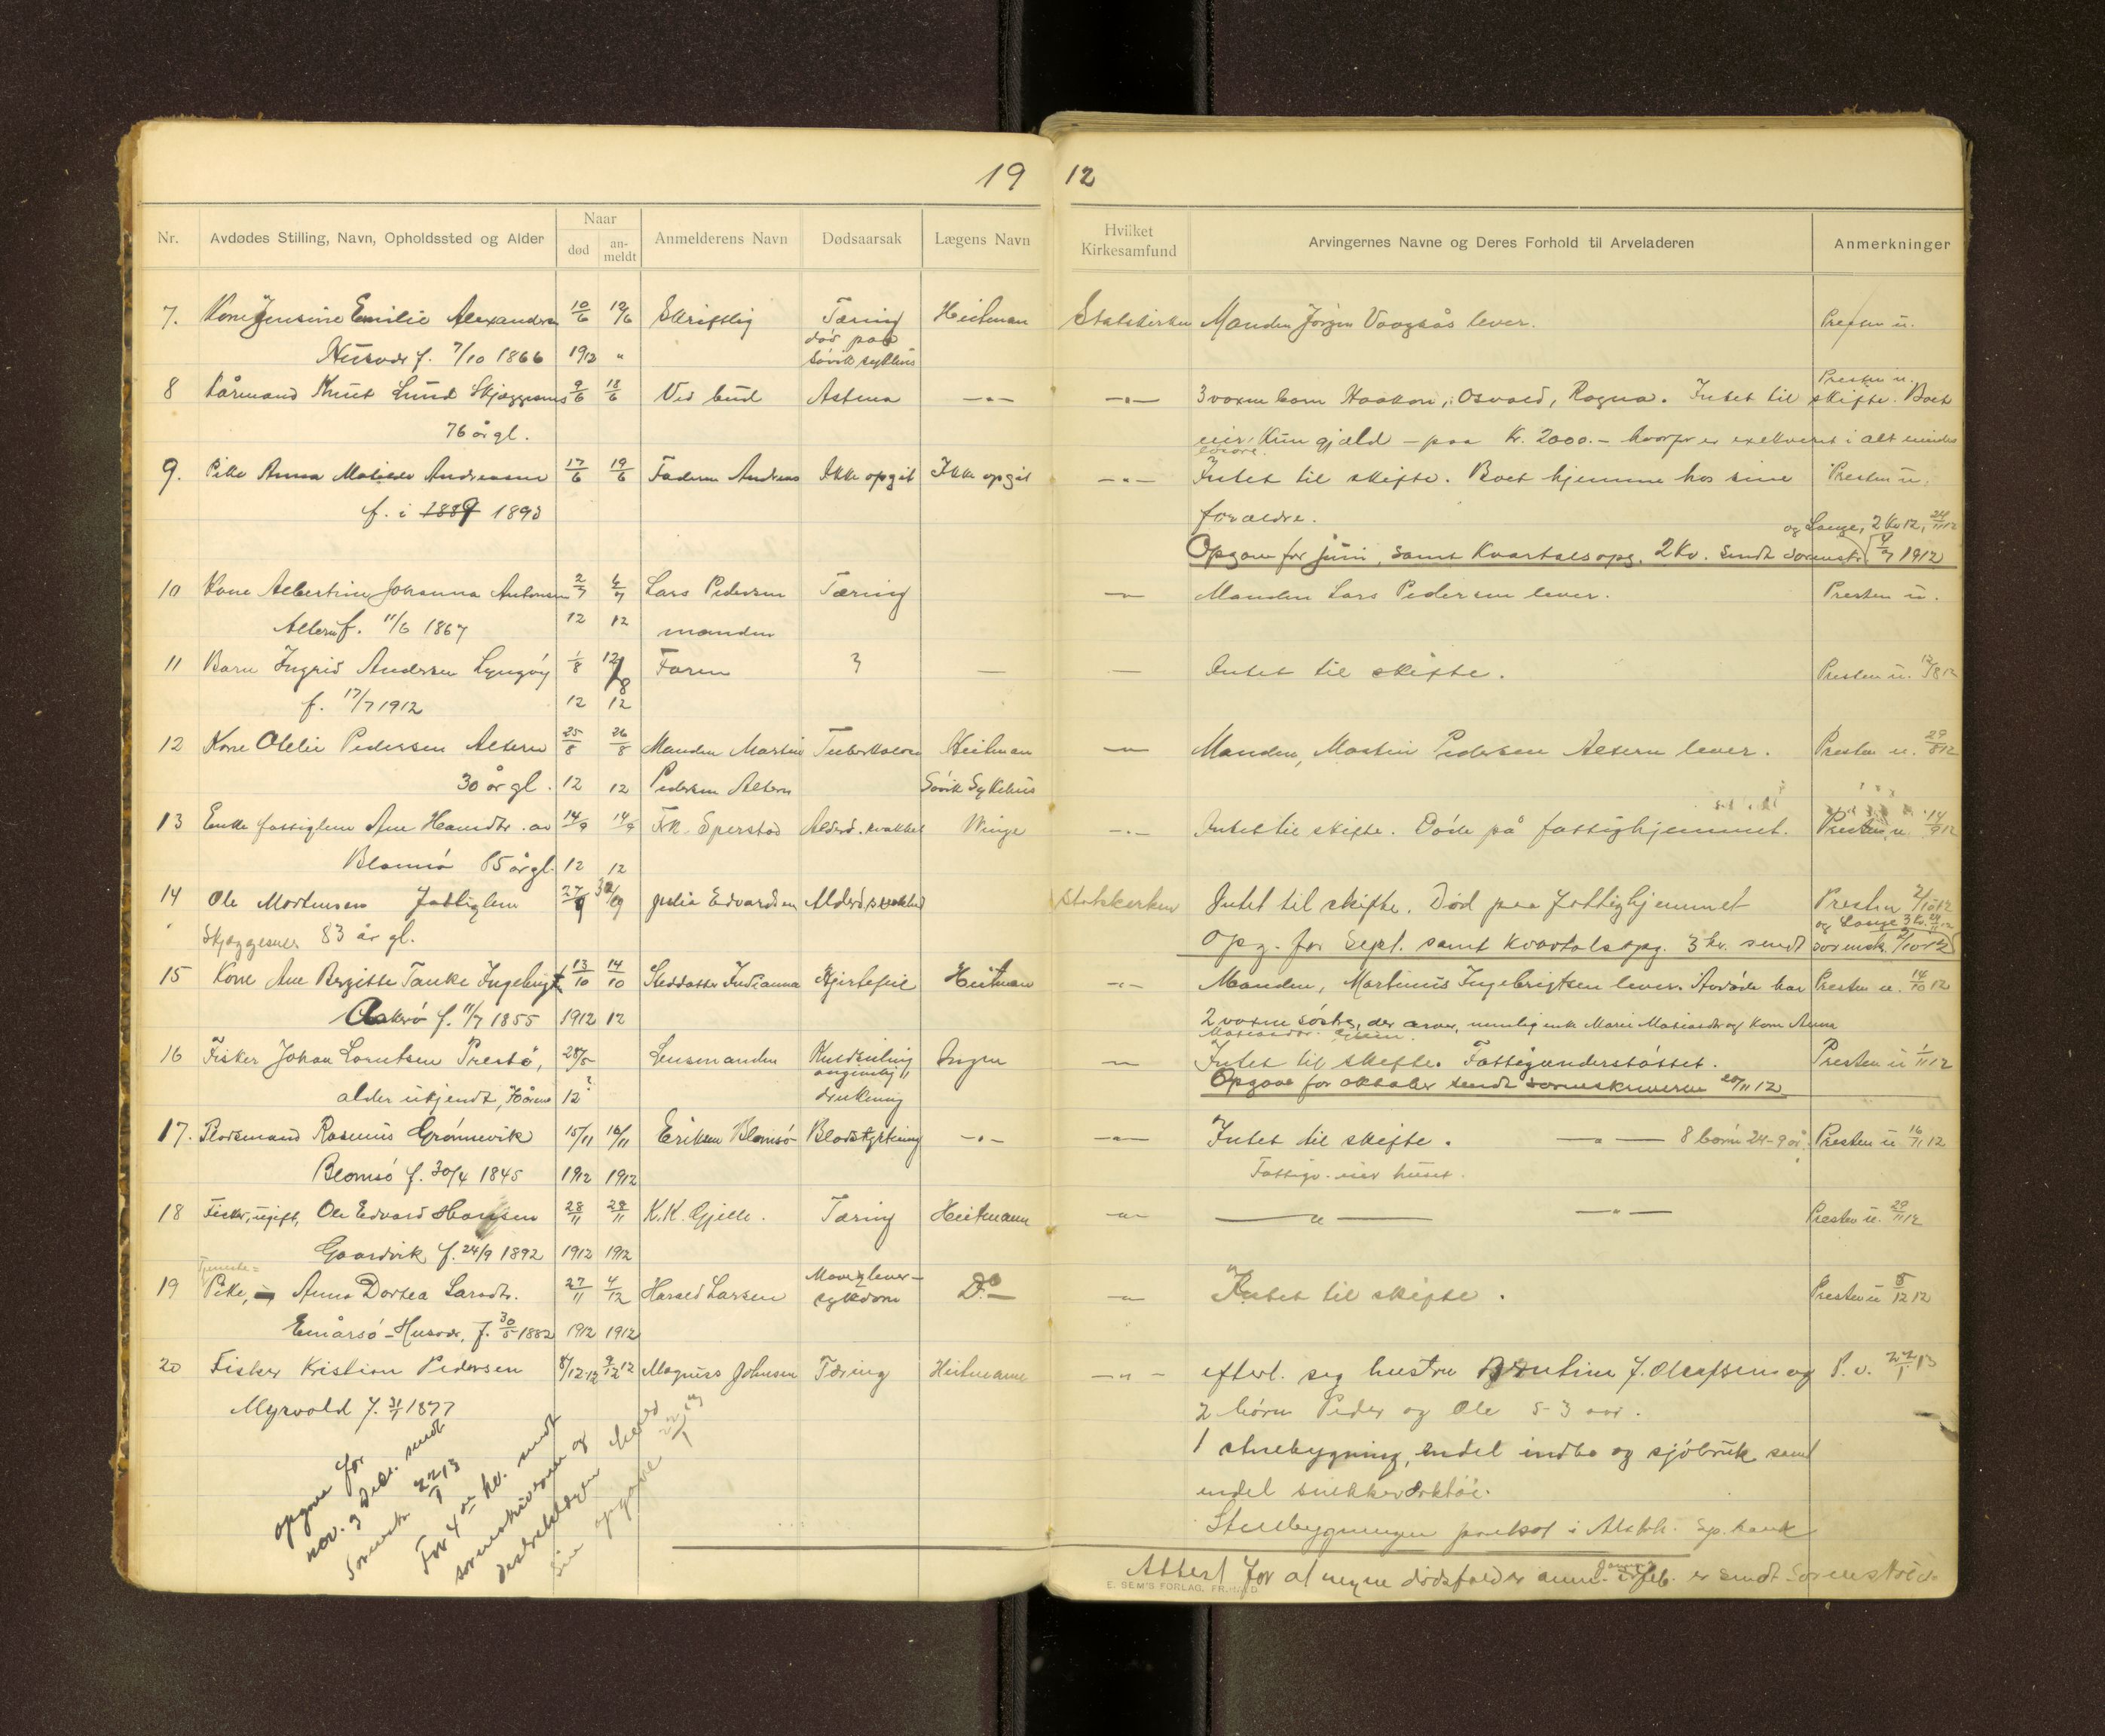 19 12
Nr. Avdødes Stilling, Navn, Opholdssted og Alder Naar død an-meldt Anmelderens Navn Dødsaarsak Lægens Navn Hvilket Kirkesamfund Arvingernes Navne og Deres Forhold til Arveladeren Anmerkninger
7. Kone Jensine Emilie 10/6 19/6 Skriftlig Tæring Heitman Statskirken Manden Jörgen lever. Presten u.
f. 7/10 1866 1912 " död paa Sövik sykehus
Presten u.
8 Kårmand Knut Lund Skjæggesnes 9/6 18/6 Ved bud Astma —"— —"— 3 voxne barn Haakon, Osvald, Ragna. Intet til skifte. Boet
76 år gl. eier kun gjæld – paa Kr. 2000.– hvorfor er i alt
9. Pike Anna Andreasen 17/6 19/6 Faderen Andreas Ikke opgit Ikke opgit —"— Intet til skifte. Boet hjemme hos sine Presten u.
f. i 1889 1893 forældre.
og Lange, 2 Kv 12, 24/11 12
Opgave for juni, samt Kvartalsopg. 2 Kv. sendt sorenskr. 4/7 1912
10 Kone Albertine Johanna Antonsen 2/7 4/7 Lars Pedersen Tæring — Manden Lars Pedersen lever. Presten u.
f. 11/6 1867 12 12 manden
11 Barn Ingrid Andersen Lyngöy 1/8 12/8 Faren ? — — Intet til skifte. Presten u. 13/8 12
f. 17/7 1912 12 12
12 Kone Olelie Pedersen Altern 25/8 26/8 Manden Martin Tuberkolose Heitman — Manden, Martin Pedersen Altern lever. Presten u. 29/8 12
30 år gl. 12 12 Pedersen Altern Sövik Sykehus
13 Enke fattiglem Ane Hansdtr. av 14/9 14/9 Frk. Sperstad Alderd. svakhet Winge —"— Intet til skifte. Döde på fattighjemmet. Presten u. 14/9 12
Blomsö 85 år gl. 12 12
14 Ole Mortensen Fattiglem 27/9 30/9 Julie Edvardsen Alderdsvakhed Statskirken Intet til skifte. Död paa Fattighjemmet Presten 2/10 12
og Lange 3 Kv. 24/11 12
Skjæggesnes 83 år gl. Opg. for Sept. samt Kvartalsopg. 3 kv. sendt sorenskr. 2/10 12
15 Kone Ane Bergitte Tanke Ingebrigt 13/10 14/10 Steddatter Indianna Hjertefeil Heitman —"— Manden, Martinus Ingebrigtsen lever. Avdöde har Presten u. 14/10 12
Askerö f. 11/7 1855 1912 12 2 voxne söstre, der arver, nemlig enke Marie Matiasdtr og Kone Anna
Matiasdtr.
16 Fisker Johan Lorntsen Prestö, 28/5 Lensmanden Kuldseiling Ingen — Intet til skifte. Fattigunderstöttet. Presten u 1/11 12
alder ukjendt, 70 årene 12? angivelig drukning Opgave for oktober sendt sorenskriveren 20/11 12
17. Plodsmand Rasmus Grönnevik 15/11 16/11 Eriksen Blomsö Blodstyrtning —"— —"— Intet til skifte. —"— 8 börn 24-9 år. Presten u 16/11 12
Blomsö f. 30/4 1845 1912 1912 Fattige. eier huset.
18 Fisker, ugift, Ole Edvard Hansen 28/11 28/11 K.K. Gjelle. Tæring Heitmann —"— —"— —"— Presten u. 29/11 12
Gaardvik f. 24/9 1892 1912 1912
Tjeneste=
19 Pike, Anna Dortea Larsdtr. 27/11 4/12 Harald Larsen Mave & lever- sykdom Do — Intet til skifte. Presten u 5/12 12
Husvær, f. 30/5 1882 1912 1912
20 Fisker Kristian Pedersen 8/12 12 9/12 12 Magnus Johnsen Tæring Heitmann —"— efterl. sig hustru Bentine J. Olafsen og P. u. 22/1 13
Myrvold f. 31/1 1877 2 börn Peder og Ole 5-3 aar.
1 stuebygning, endel indbo og sjöbruk samt
endel snekkerverktöi.
Stuebygningen pantsat i Alsth. Sp. bank
opgave for
nov. og Decbr. sendt
Sorenskr 22/1 13
For 4de kv. sendt
sorenskriveren og
distriktslægen
sin opgave 22/1 13
Attest for at ingen dödsfald er anm. i Januar og feb. er sendt Sorenskriv.
E. SEM'S FORLAG, FR.HALD